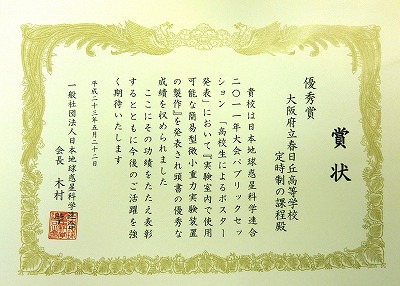 賞状
優秀賞
大阪府立春日丘高等学校
定時制の課程殿
貴校は日本地球惑星科学連合
二〇一一年大会パブリックセッ
ション「高校生によるポスター
発表」において『実験室内で使用
可能な簡易型微小重力実験装置
の製作』を発表され頭書の優秀な
成績を収められました
ここにその功績をたたえ表彰
するとともに今後のご活躍を強
く期待いたします
平成二十三年五月二十二日
一般社団法人日本地球惑星科学
会長 木村